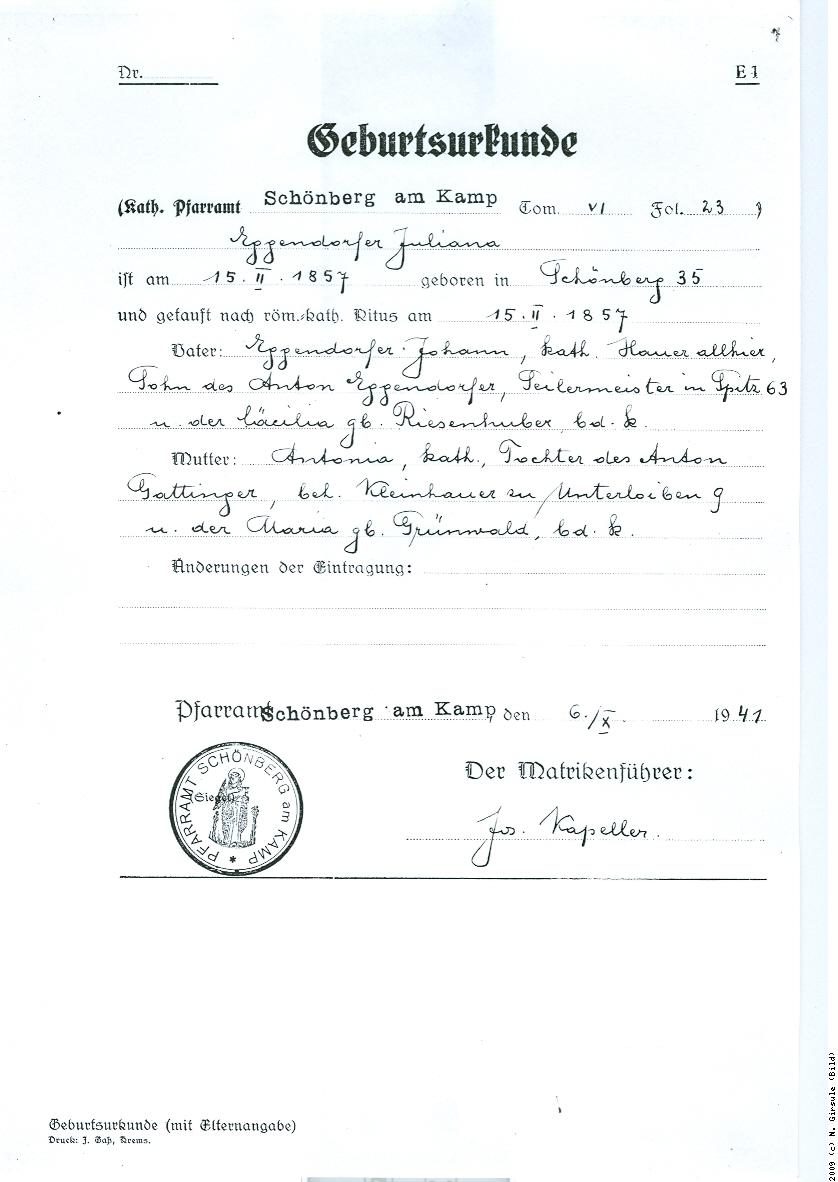 Nr.
E 1
Geburtsurkunde
(Kath. Pfarramt Schönberg am Kamp Tom. VI Fol. 23 )
Eggendorfer Juliana
ist am 15. II. 1857 geboren in Schönberg 35
und getauft nach röm.-kath. Ritus am 15. II. 1857
Vater: Eggendorfer Johann, kath. Hauer allhier,
Sohn des Anton Eggendorfer, Seilermeister in Spitz 63
u. der Cäcilia gb. Riesenhuber, bd. k.
Mutter: Antonia, kath., Tochter des Anton
Gattinger, beh. Kleinhauer zu Unterloiben 9
u. der Maria gb. Grünwald, bd. k.
Änderungen der Eintragung:
Pfarramt Schönberg am Kamp, den 6./X. 1941.
PFARRAMT SCHÖNBERG am KAMP
(Siegel)
Der Matrikenführer:
Jos. Kapeller.
Geburtsurkunde (mit Elternangabe)
Druck: J. Gaß, Krems.
2009 (c) N. Girsule (Bild)